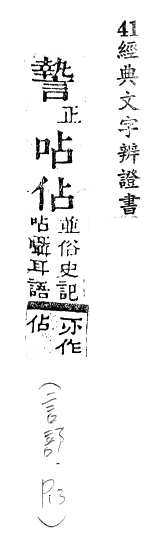 41經典文字辨證書
謺正
呫佔
並俗史記
呫囁耳語
亦作
佔
(言部.P13)